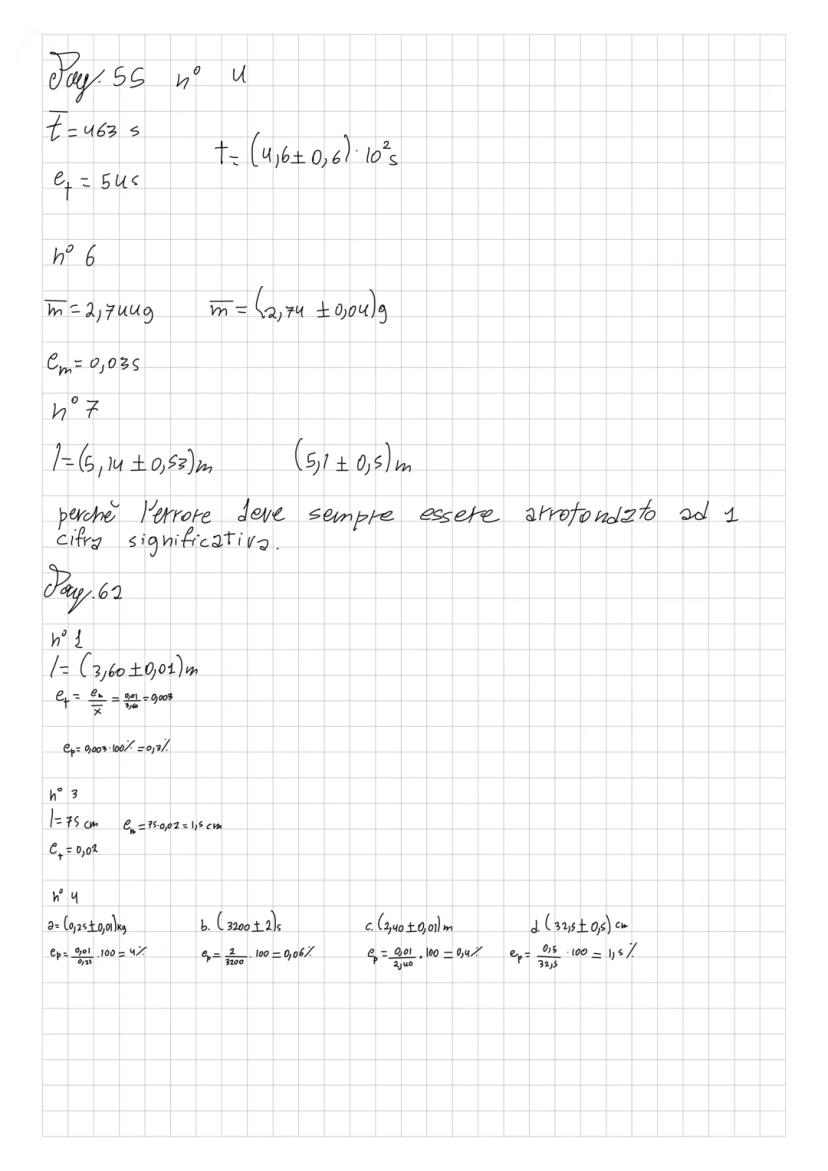 Pag. 55 n° 4
t̅ = 463 s
t = (4,6 ± 0,6) · 10² s
e_t = 54s
n° 6
m̅ = 2,744g m̅ = (2,74 ± 0,04)g
e_m = 0,035
n° 7
l = (5,14 ± 0,53)m (5,1 ± 0,5)m
perchè l'errore deve sempre essere arrotondato ad 1
cifra significativa.
Pag. 62
n° 1
l = (3,60 ± 0,01)m
e_r = e_a/x̅ = 0,01/3,60 = 0,003
e_p = 0,003 · 100% = 0,3%
n° 3
l = 75 cm e_a = 75·0,02 = 1,5 cm
e_r = 0,02
n° 4
a = (0,25 ± 0,01)kg b. (3200 ± 2)s c. (2,40 ± 0,01)m d. (32,5 ± 0,5) cm
e_p = 0,01/0,25 · 100 = 4% e_p = 2/3200 · 100 = 0,06% e_p = 0,01/2,40 · 100 = 0,4% e_p = 0,5/32,5 · 100 = 1,5%